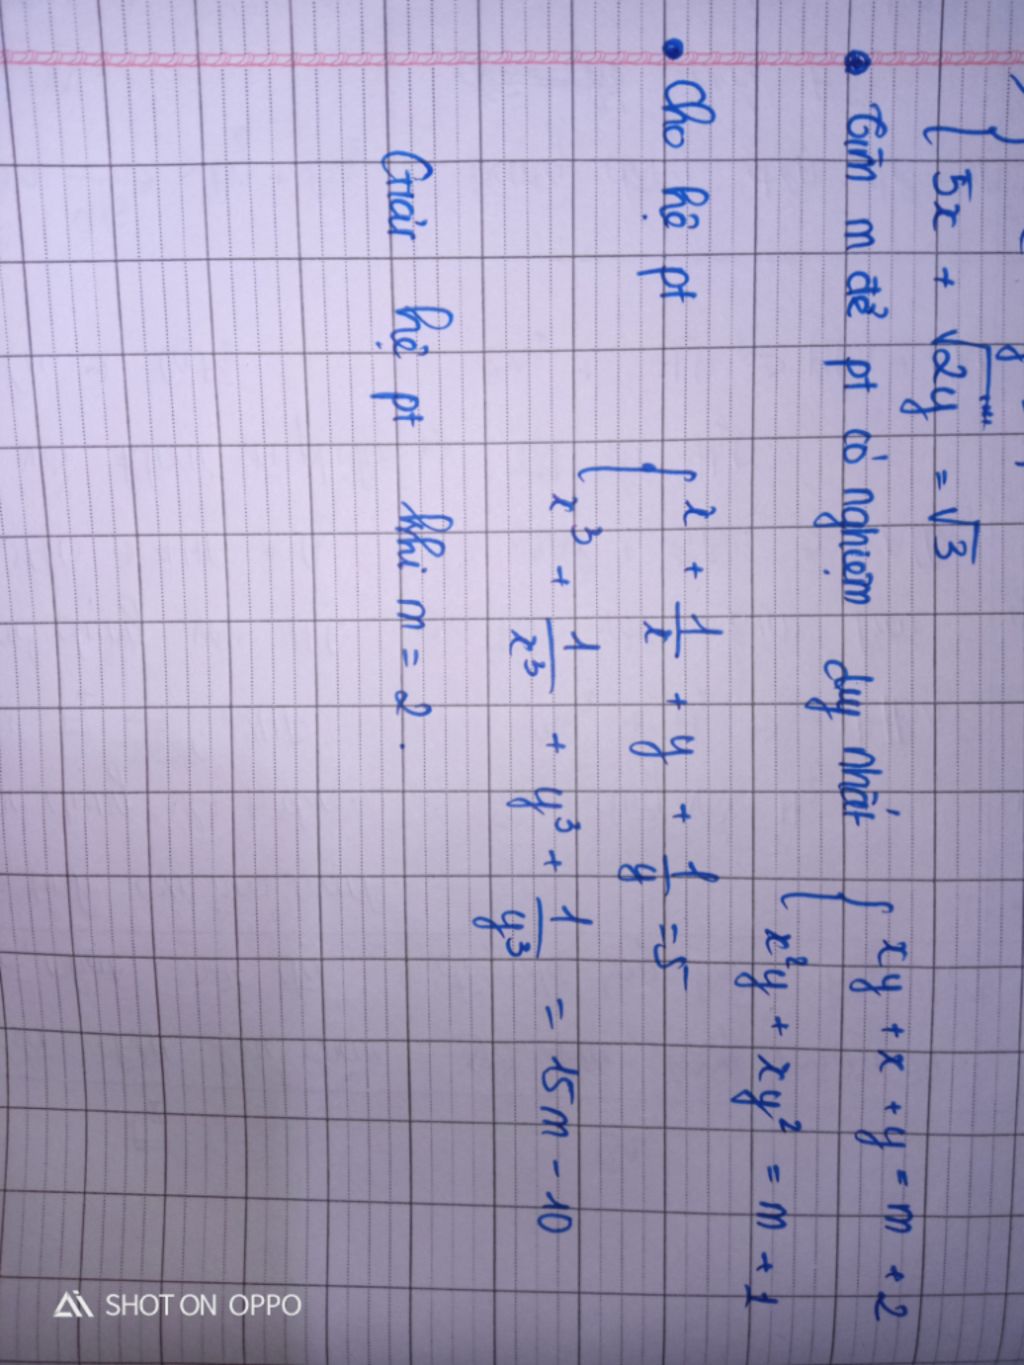 5x + √2y = √3
• Tìm m để pt có nghiệm duy nhất { xy + x + y = m + 2
x²y + xy² = m + 1
• Cho hệ pt { x + 1/x + y + 1/y = 5
x³ + 1/x³ + y³ + 1/y³ = 15m - 10
Giải hệ pt khi m = 2.
SHOT ON OPPO